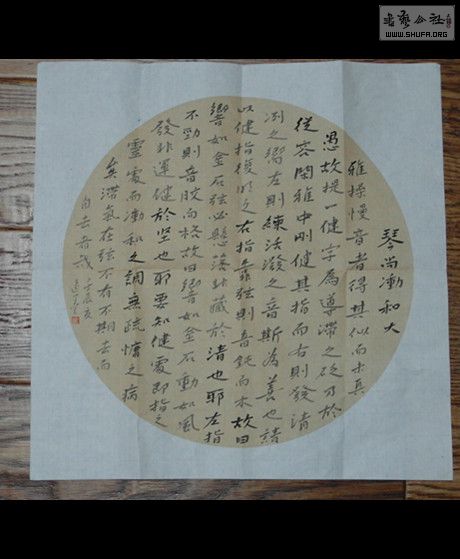 書藝公社
WWW.SHUFA.ORG
琴尚冲和大
雅操慢音者得其似而未真
愚故提一健字為導滯之砭乃於
從容閑雅中剛健其指而右則發清
冽之響左則練活潑之音斯為善也請
以健指復明之右指靠弦則音鈍而木故曰
響如金石弦必懸落非藏於清也耶左指
不勁則音膠而格故曰響如金石動如風
發非運健於堅也耶要知健處即指之
靈處而冲和之調無疏慵之病
矣滯氣在弦不有不期去而
自去者哉 壬辰